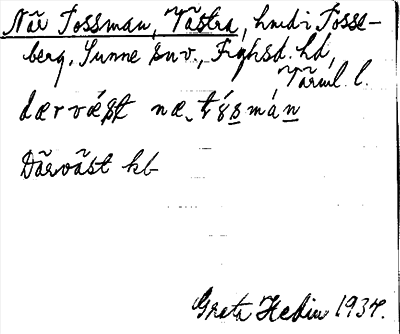 När Tossman, Västra, hmd i Tosse-
berg, Sunne snv., Fryksd. hd,
Värml. l.
dærvést næ, tɤ́smán
Därväst kb
Greta Hedin 1934.